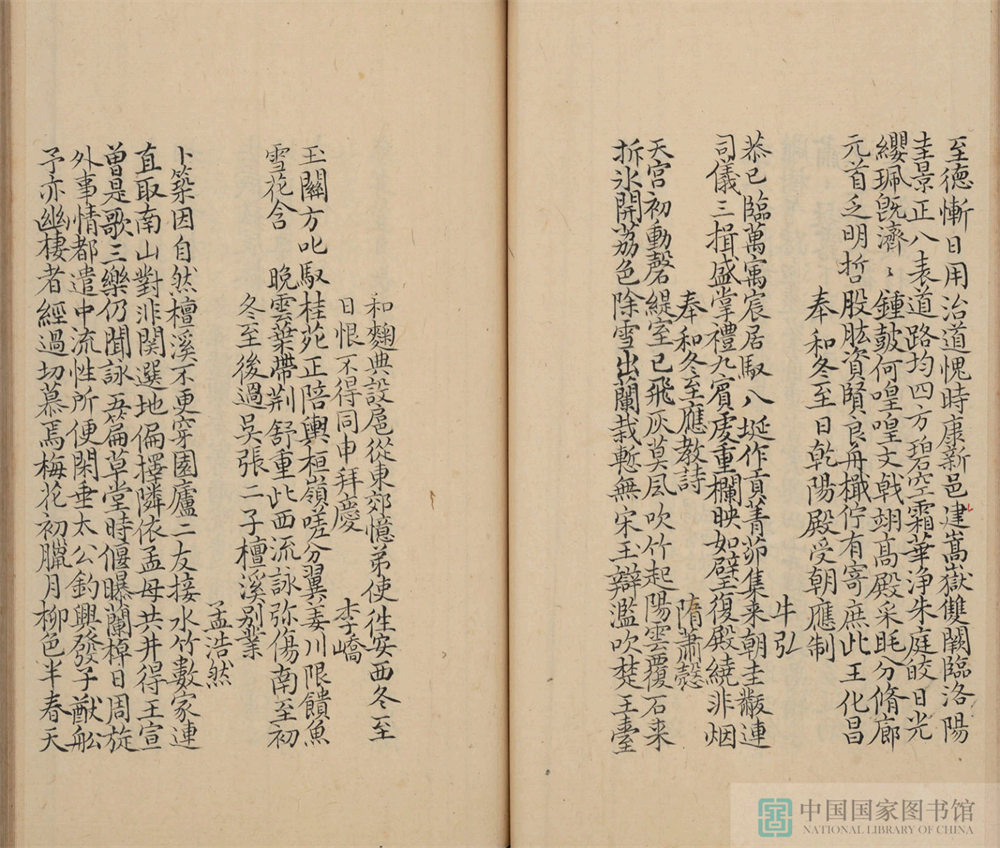 至德慚日用治道愧時康新邑建嵩嶽雙闕臨洛陽
圭景正八表道路均四方碧空霜華淨朱庭皎日光
纓珮旣濟〻鍾皷何喤喤文戟翊高殿采眊分脩廊
元首乏明哲股肱資賢良舟檝佇有寄庶此王化昌
奉和冬至日乾陽殿受朝應制
牛弘
恭己臨萬㝢宸居馭八埏作貢菁茆集来朝圭黻連
司儀三揖盛掌禮九賓虔重欄映如璧復殿繞非烟
奉和冬至應教詩
隋蕭慤
天宮初動磬緹室已飛灰莫風吹竹起陽雲覆石来
拆氷開荔色除雪出蘭栽慙無宋玉辯濫吹楚王臺
和麴典設扈從東郊憶弟使往安西冬至
日恨不得同申拜慶
李嶠
玉關方叱馭桂苑正陪輿桓嶺嗟分翼姜川限饋魚
雪花含 晚雲葉帶荆舒重此西流詠弥傷南至初
冬至後過吳張二子檀溪别業
孟浩然
卜築因自然檀溪不更穿園廬二友接水竹數家連
直取南山對非関選地偏擇隣依孟母共井得王宣
曾是歌三樂仍聞詠五篇草堂時偃曝蘭棹日周旋
外事情都遣中流性所便閑垂太公釣興發子猷船
予亦幽棲者經過切慕焉梅花初臘月柳色半春天
中国国家图书馆
NATIONAL LIBRARY OF CHINA